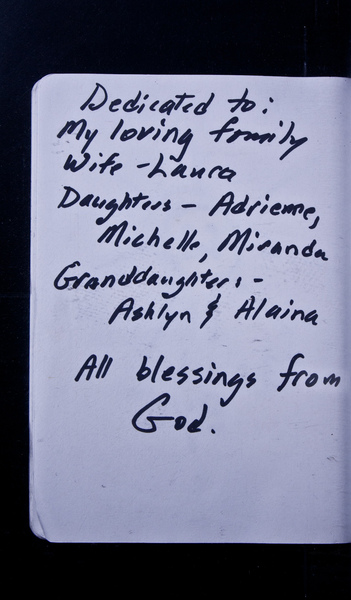 Dedicated to:
My loving family
Wife - Laura
Daughters - Adrienne,
Michelle, Miranda
Granddaughters -
Ashlyn & Alaina
All blessings from
God.